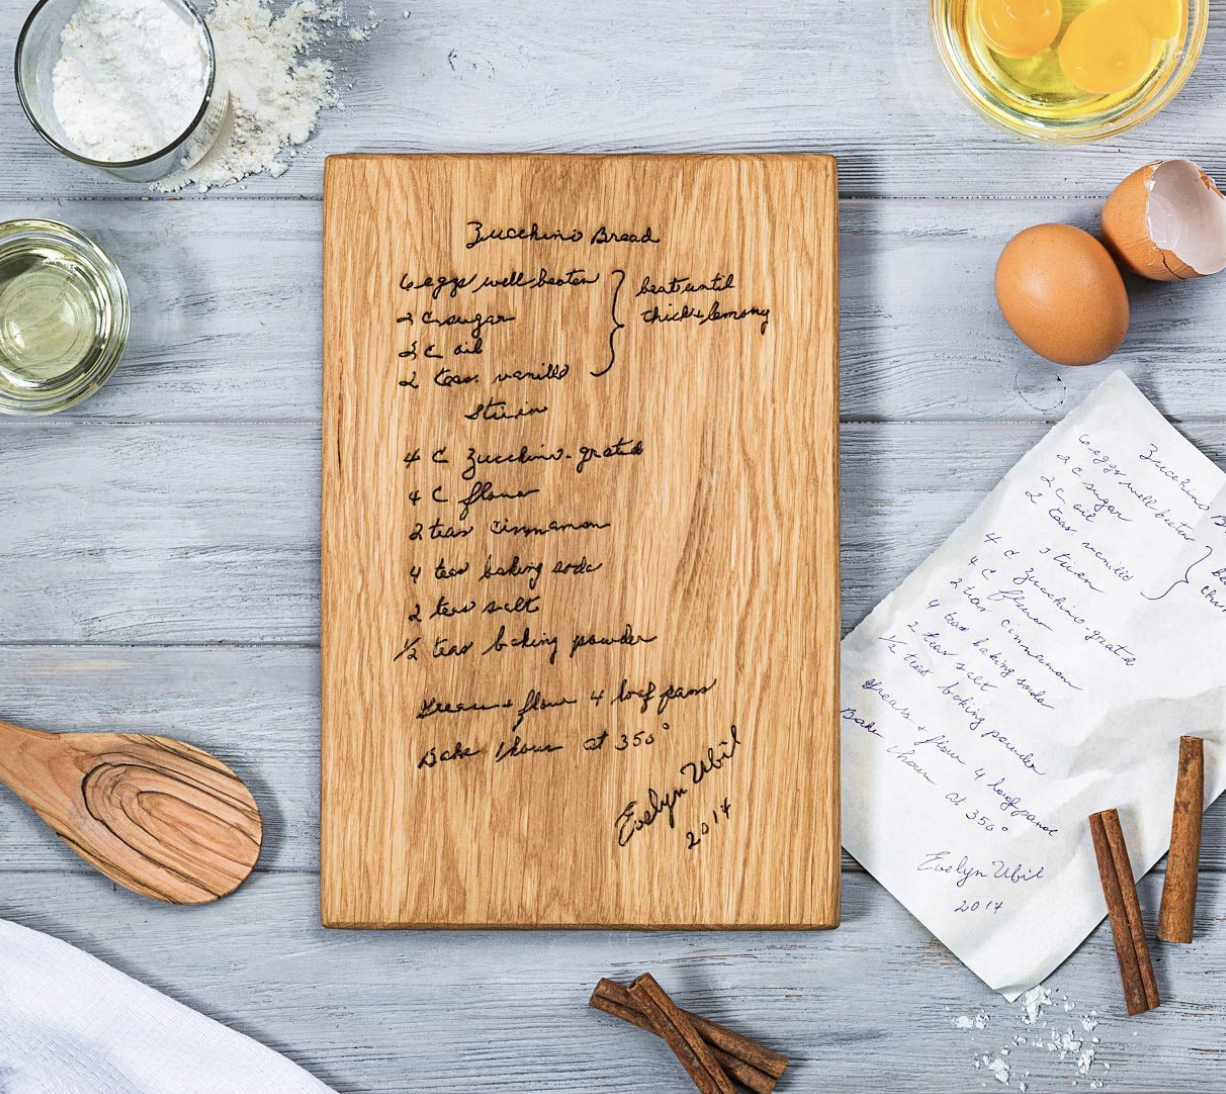 Zucchino Bread
6 eggs well beaten
2 C sugar
2 C oil
2 teas vanilla
beat until
thick & lemony
Stir in
4 C Zucchino - grated
4 C flour
2 teas cinnamon
4 teas baking soda
2 teas salt
1/2 teas baking powder
Grease + flour 4 loaf pans
Bake 1 hour at 350°
Evelyn Ubil
2014
Zucchino
6 eggs well beaten
2 C sugar
2 C oil
2 teas vanilla
Stir in
4 C Zucchino - grated
4 C flour
2 teas cinnamon
4 teas baking soda
2 teas salt
1/2 teas baking powder
Grease + flour 4 loaf pans
Bake 1 hour at 350°
Evelyn Ubil
2014